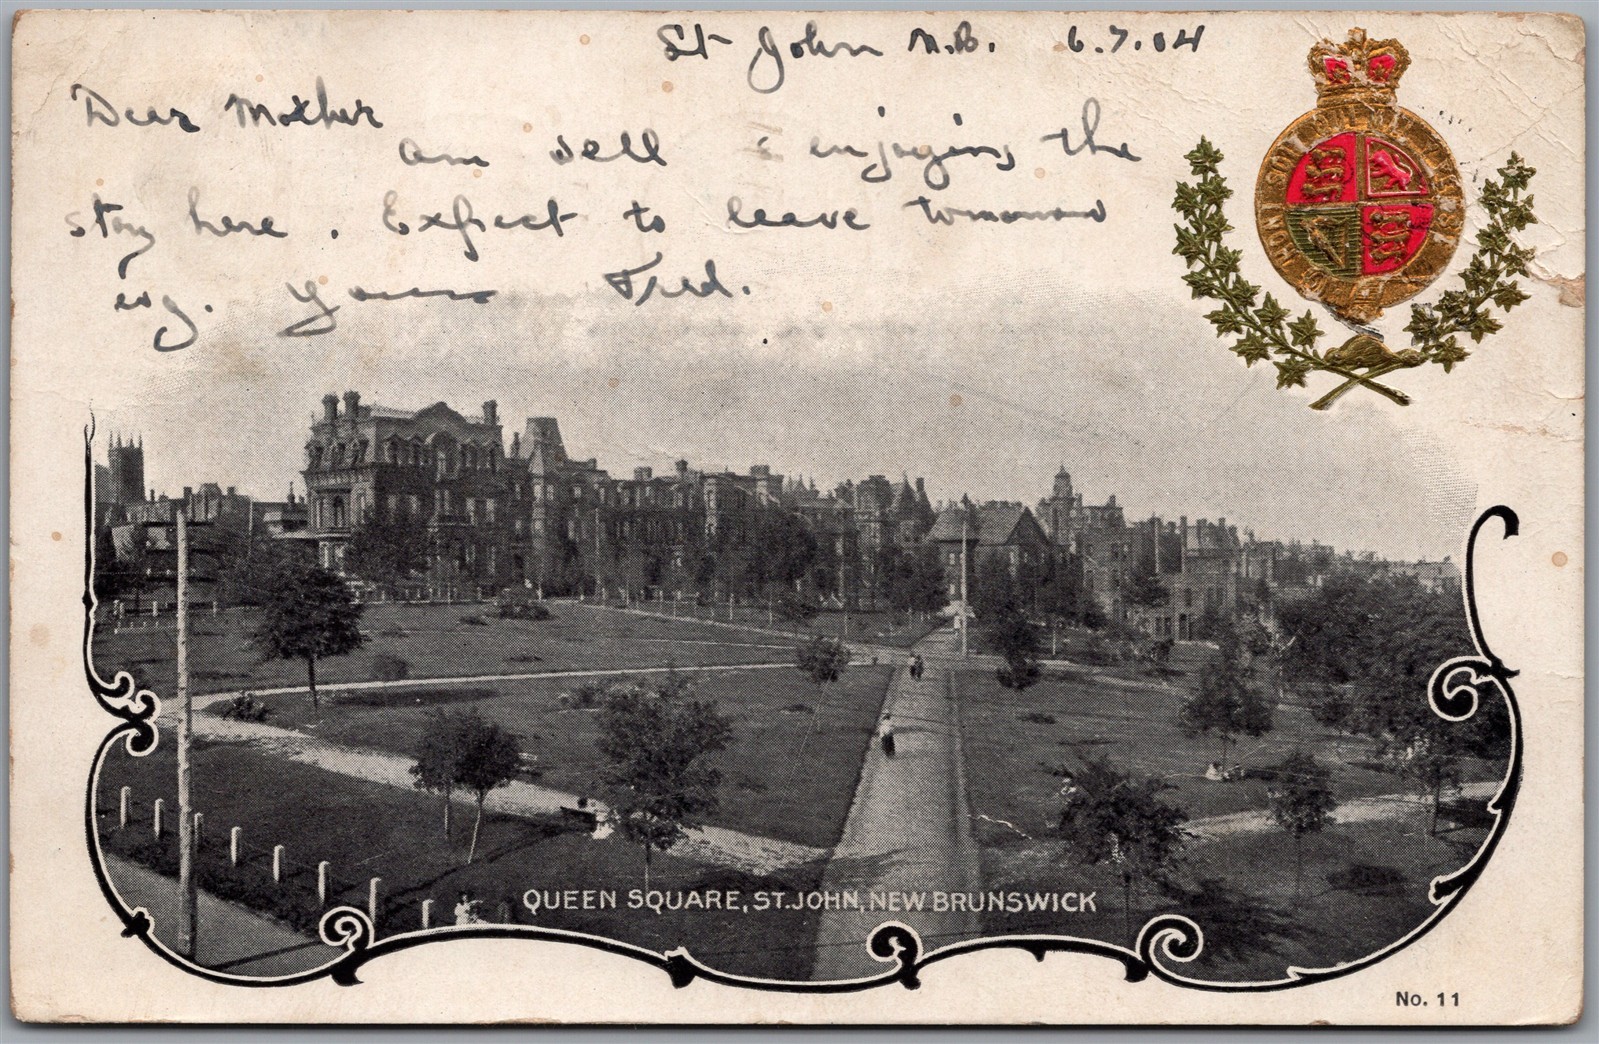 St John N.B. 6.7.04
Dear Mother
am well & enjoying the
stay here. Expect to leave tomorrow
evg. Yours Fred.
HONI SOIT QUI MAL Y PENSE
QUEEN SQUARE, ST. JOHN, NEW BRUNSWICK
No. 11